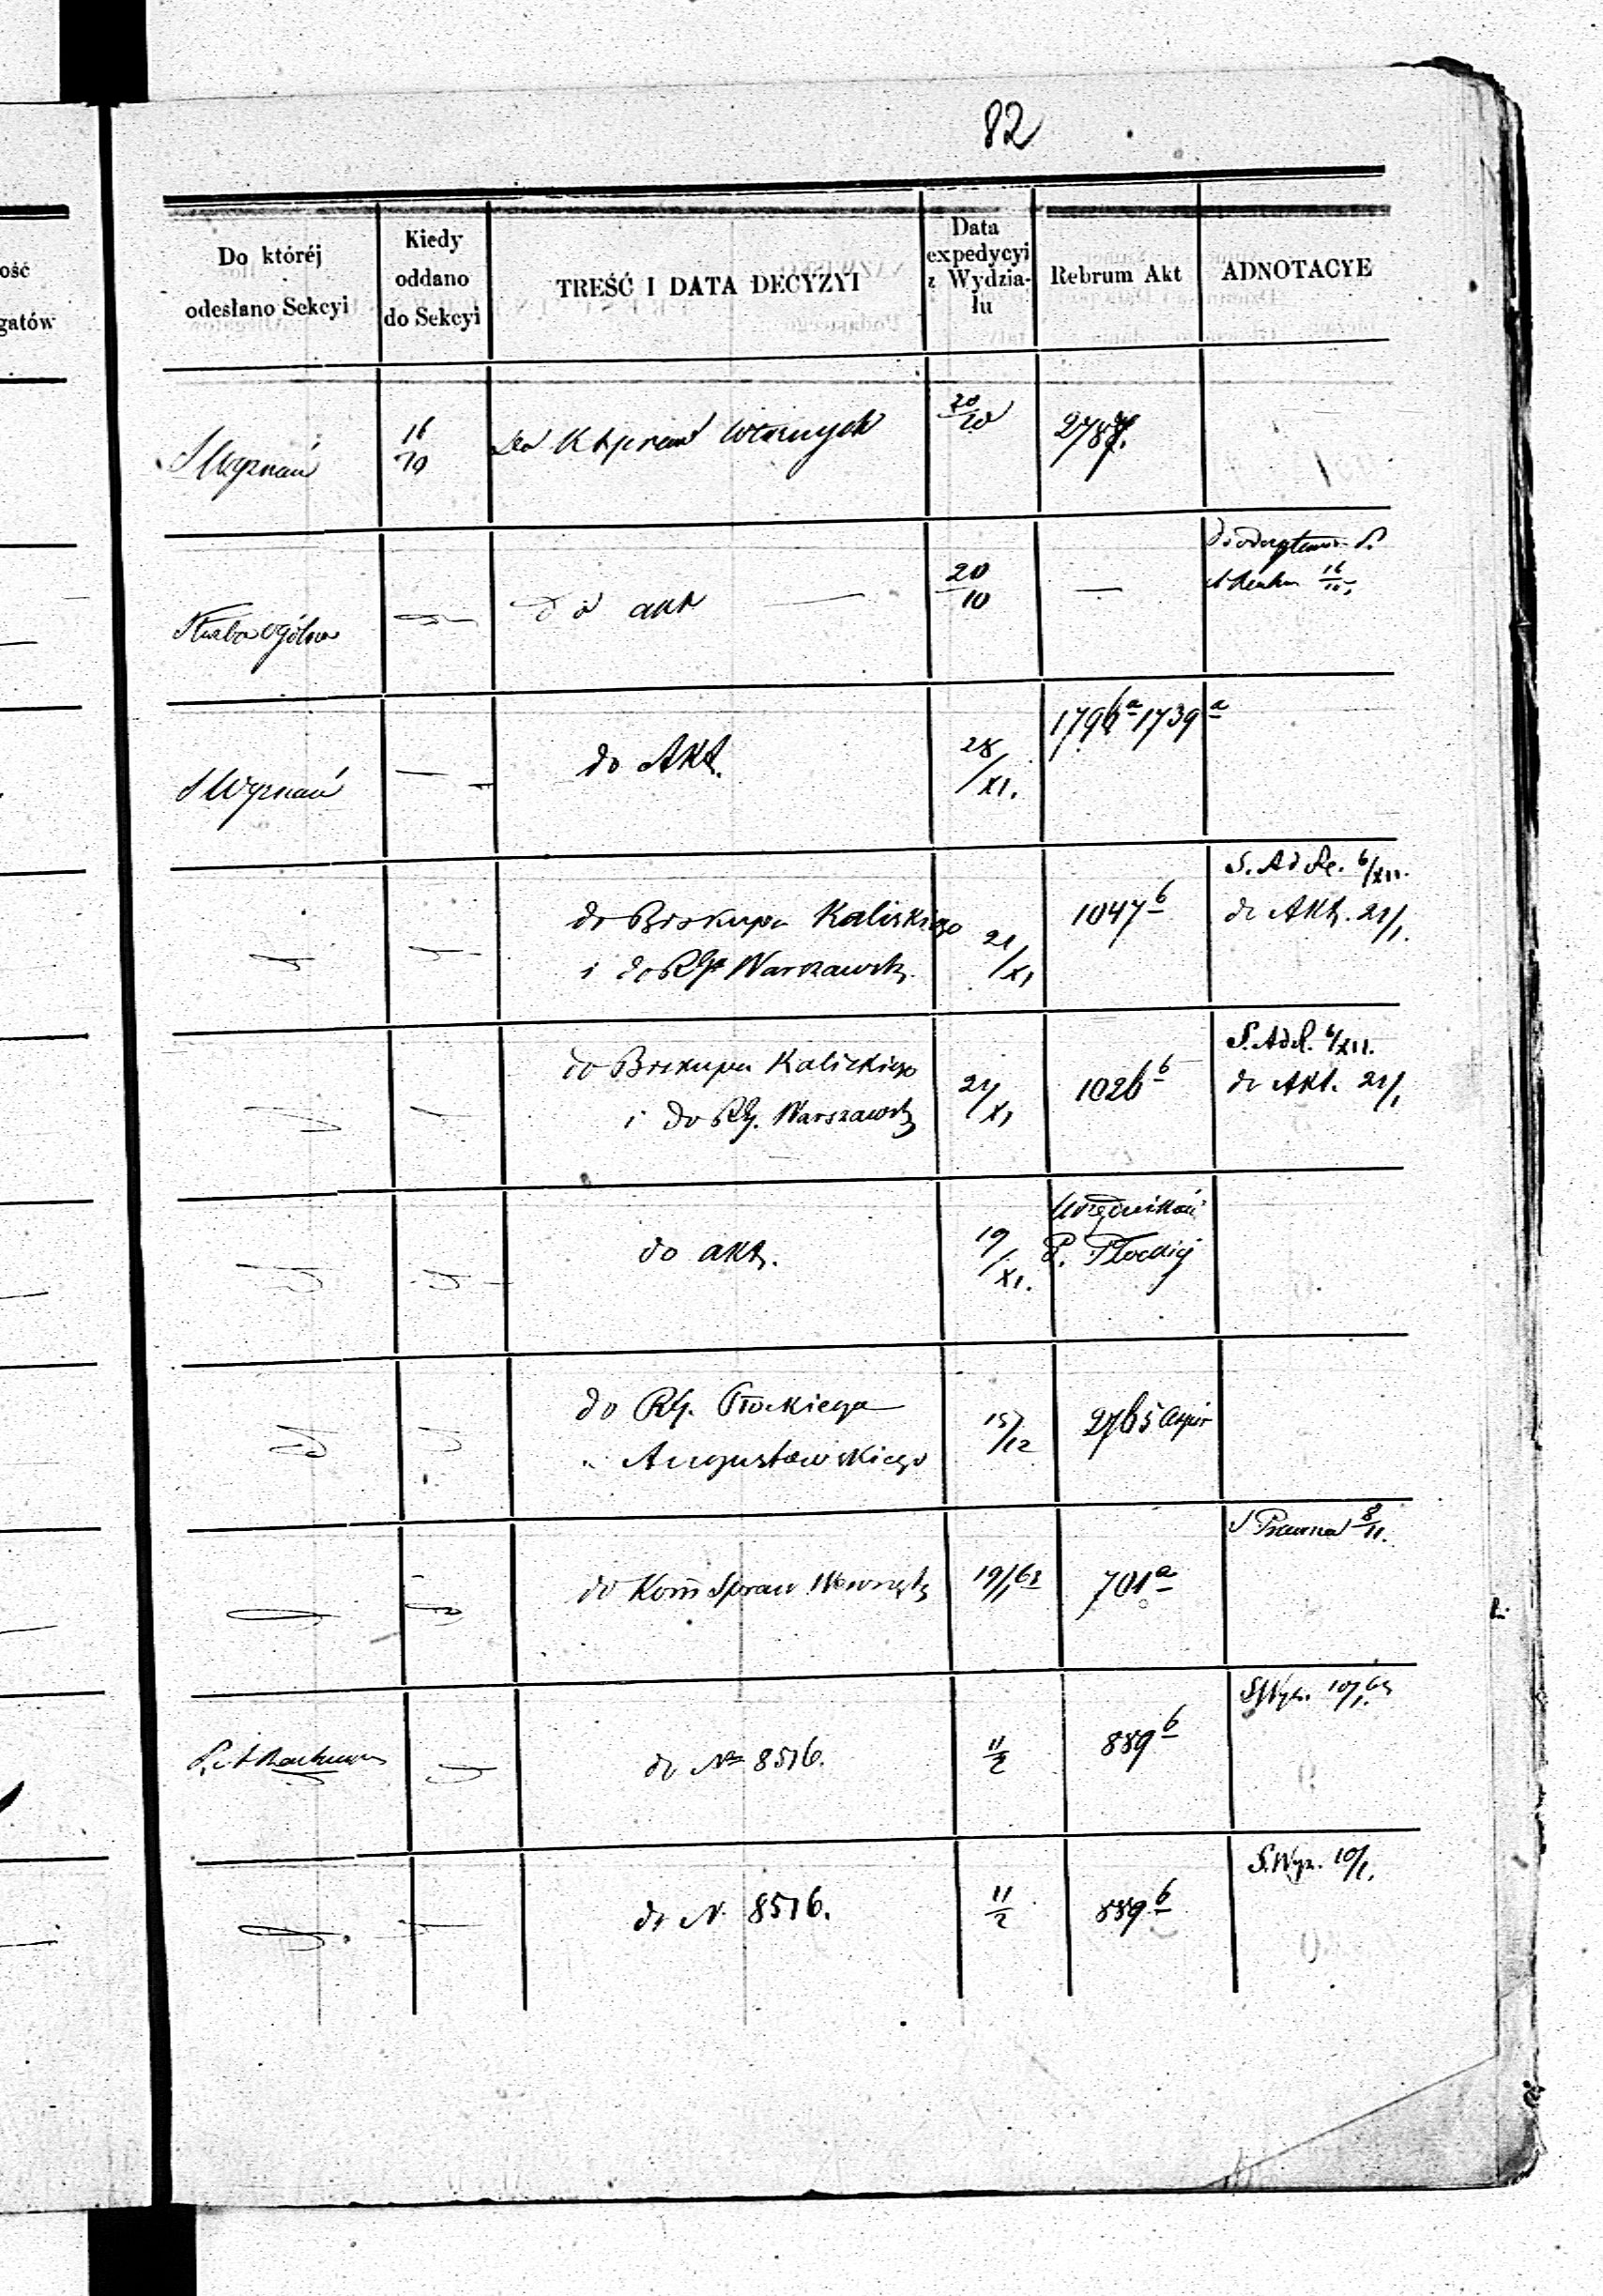 82
ość
gatów
Do któréj
odesłano Sekcyi
Kiedy
oddano
do Sekcyi
TREŚĆ I DATA DECYZYI
Data
expedycyi
z Wydzia-
łu
Rebrum Akt
ADNOTACYE
S Wyznań
16/10
20/10
2787.
Służba Ogólna
do akt
20/10
—
16/10
S Wyznań
—
do Akt.
28/XI.
1796ª 1739ª
do Biskupa Kaliskiego
i do RG Warszawsk.
21/XI
1047b
S. Ad Re. 6/XII.
do Akt. 21/1.
do Biskupa Kaliskiego
i do RG. Warszawsk
21/XI
1026b
S. Ad R. 6/XII.
do Akt. 21/1
do akt.
19/XI.
Urzędników
P. Płockiej
do RG. Płockiego
" Augustowskiego
15/12
2765
do Kom Spraw Wewnętz
19/1 63
701ª
S Prawna 8/11.
do № 8516.
11/2
889b
S Wyz. 10/1 63
do N. 8516.
11/2
889b
S. Wyz. 10/1.